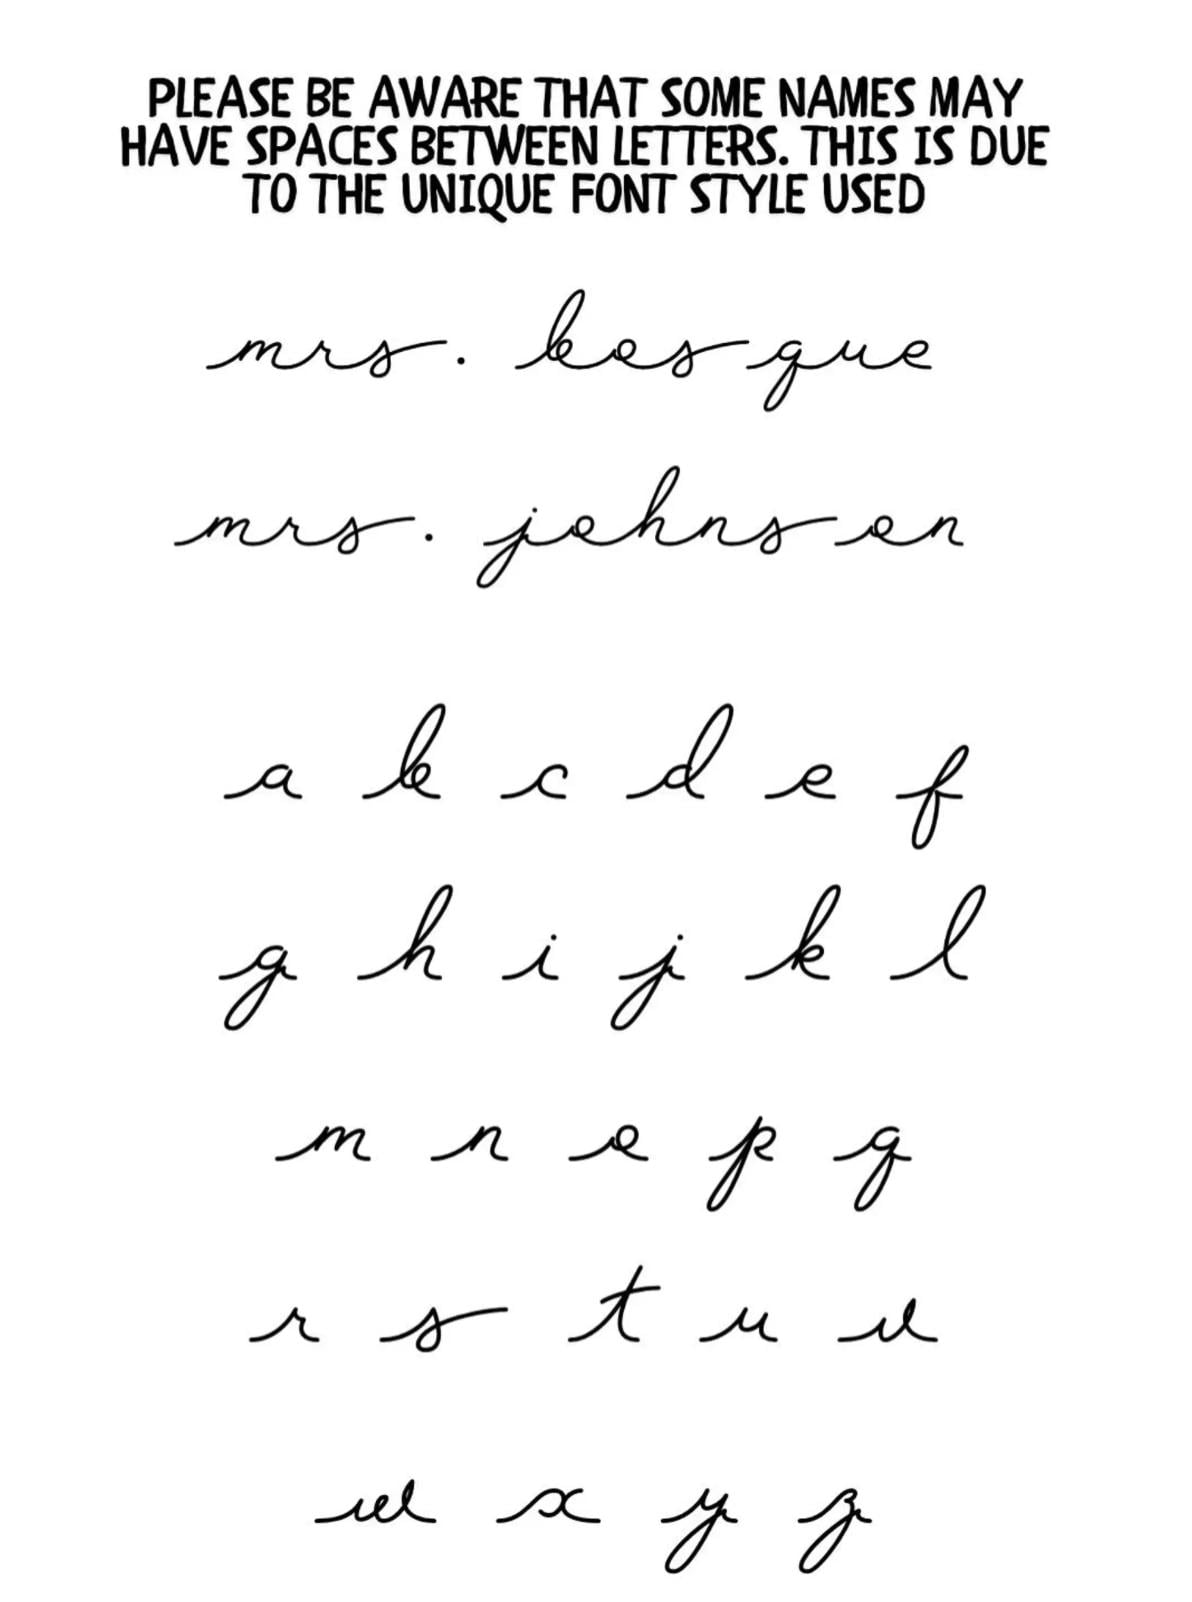 PLEASE BE AWARE THAT SOME NAMES MAY
HAVE SPACES BETWEEN LETTERS. THIS IS DUE
TO THE UNIQUE FONT STYLE USED
mrs. bosque
mrs. johnson
a b c d e f
g h i j k l
m n o p q
r s t u v
w x y z